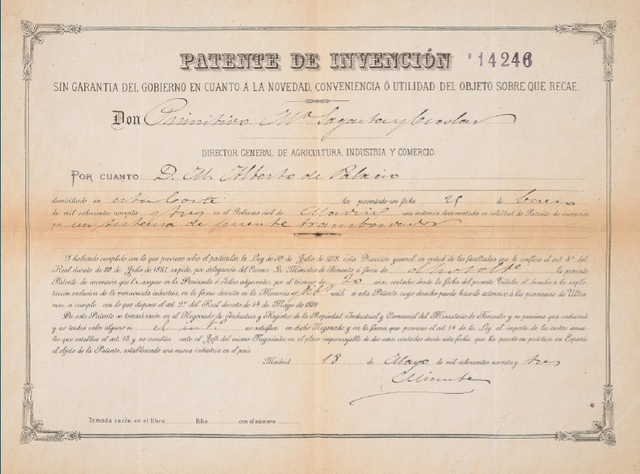 PATENTE DE INVENCIÓN 14246
SIN GARANTIA DEL GOBIERNO EN CUANTO Á LA NOVEDAD, CONVENIENCIA Ó UTILIDAD DEL OBJETO SOBRE QUE RECAE.
Don Primitivo Mª Sagasta y Escolar
DIRECTOR GENERAL DE AGRICULTURA, INDUSTRIA Y COMERCIO.
POR CUANTO D. M. Alberto de Palacio
domiciliado en esta Corte ha presentado con fecha 25 de Enero
de mil ochocientos noventa y tres en el Gobierno civil de Madrid una instancia documentada en solicitud de Patente de invención
por un sistema de puente transbordador
Y habiendo cumplido con lo que previene sobre el particular la Ley de 30 de Julio de 1878, esta Dirección general, en virtud de las facultades que le confiere el art. 4º del
Real decreto de 30 de Julio de 1887, expide, por delegación del Excmo. Sr. Ministro de Fomento á favor de la presente
Patente de invención que le asegure en la Península é islas adyacentes por el término de 20 años, contados desde la fecha del presente título, el derecho á la explotación
exclusiva de la mencionada industria, en la forma descrita en la Memoria unida á esta Patente, cuyo derecho puede hacerlo extensivo á las provincias de Ultramar,
si cumple con lo que dispone el art. 2º del Real decreto de 14 de Mayo de 1880.
De esta Patente se tomará razón en el Negociado de Industria y Registro de la Propiedad Industrial y Comercial del Ministerio de Fomento y se previene que caducará
y no tendrá valor alguno si no satisface en dicho Negociado y en la forma que previene el art. 14 de la Ley, el importe de las cuotas anuales
que establece el art. 13 y no acredita ante el Jefe del mismo Negociado en el plazo improrrogable de dos años contados desde esta fecha, que ha puesto en práctica en España
el objeto de la Patente, estableciendo una nueva industria en el país.
Madrid 18 de Mayo de mil ochocientos noventa y tres
Tomada razón en el libro folio con el número